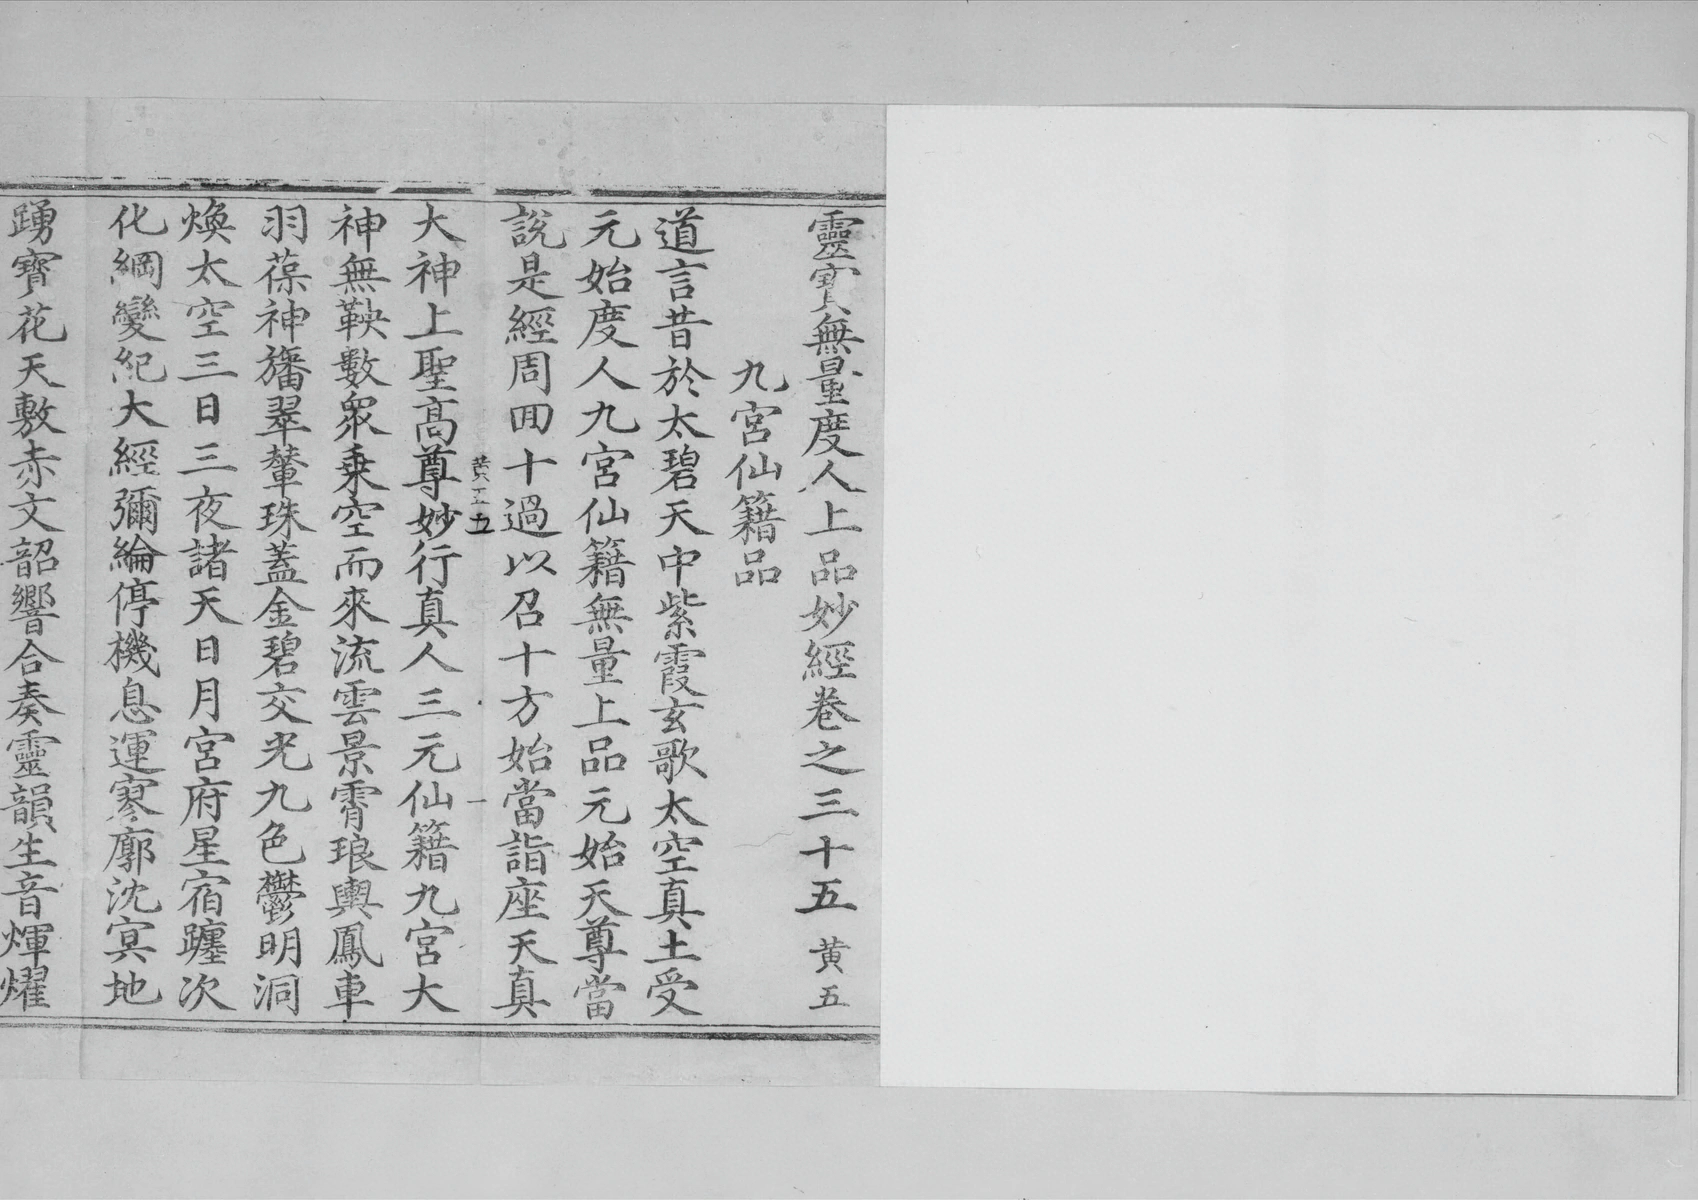 靈寳無量度人上品妙經卷之三十五 黄五
九宮仙籍品
道言昔於太碧天中紫霞玄歌太空真土受
元始度人九宮仙籍無量上品元始天尊當
說是經周回十過以召十方始當詣座天真
黄五 五 一
大神上聖高尊妙行真人三元仙籍九宮大
神無鞅數衆乗空而來流雲景霄琅輿鳳車
羽葆神旛翠輦珠蓋金碧交光九色鬱明洞
煥太空三日三夜諸天日月宮府星宿躔次
化綱變紀大經彌綸停機息運寥廓沈寞地
踴寳花天敷赤文韶響合奏靈韻生音煇燿